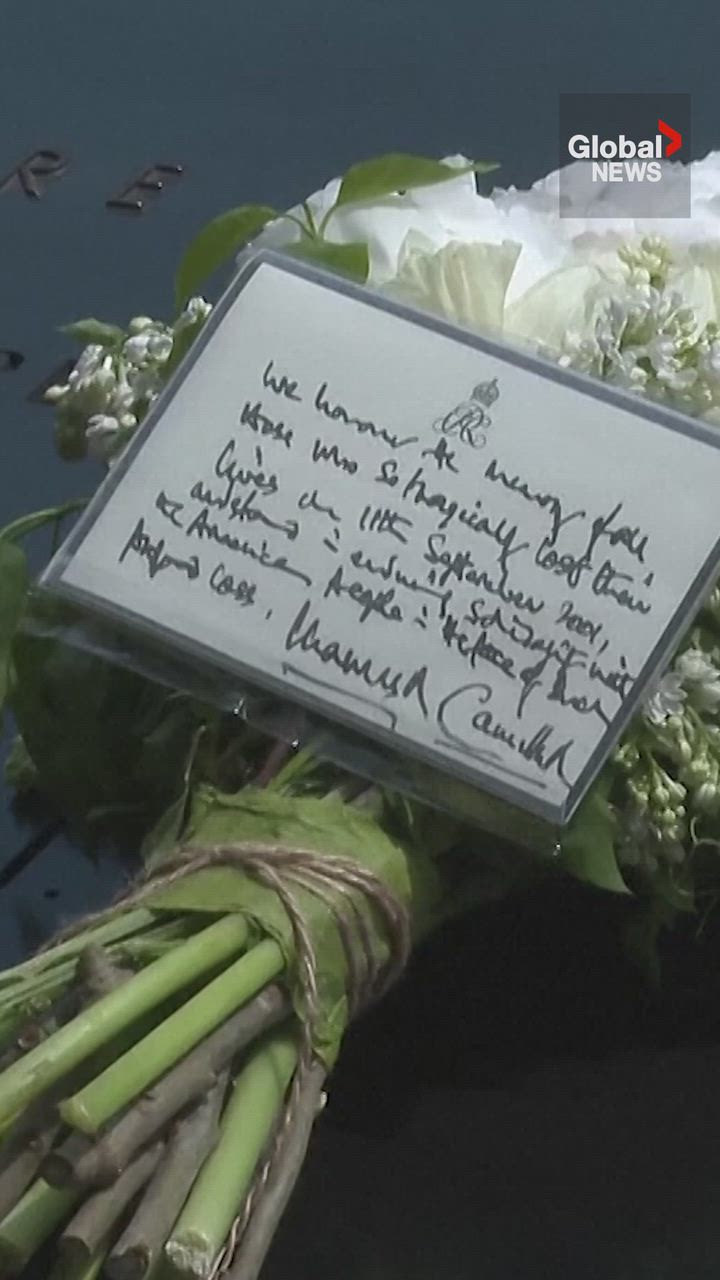 Global
NEWS
R E
We honour the memory of all
those who so tragically lost their
lives on 11th September 2001,
and stand in enduring solidarity with
the American people in the face of their
profound loss.
Charles R Camilla R